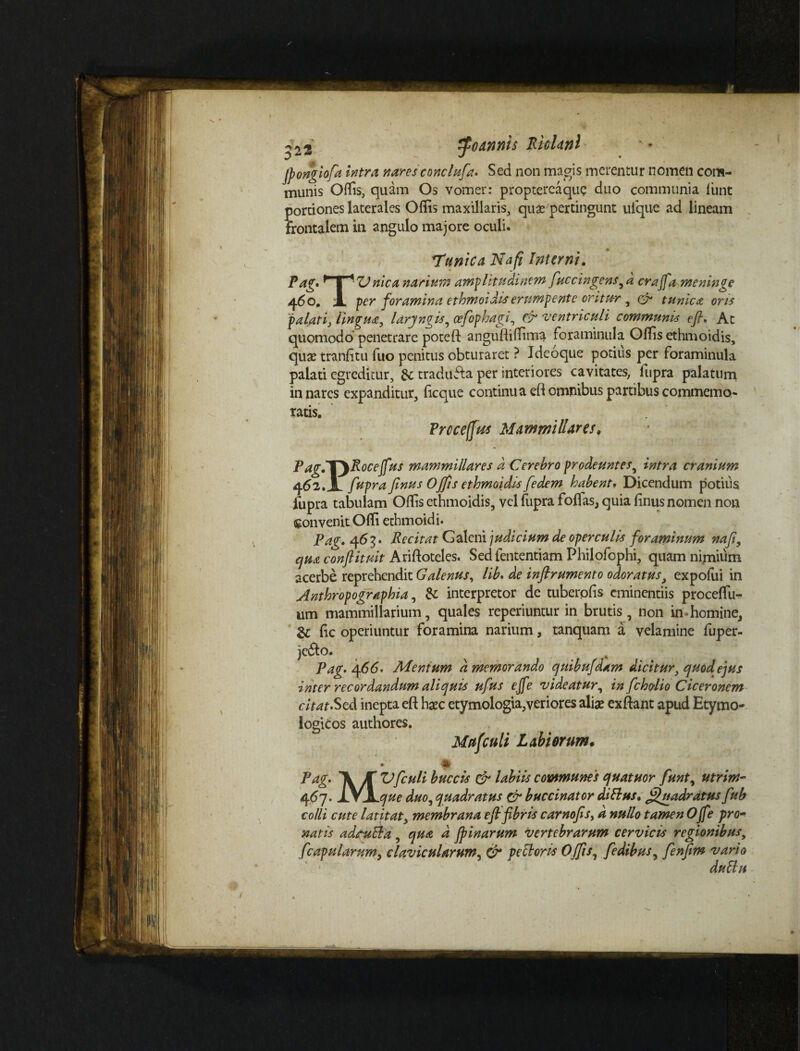 322 Joannis Riolani
ſpongioſa intra nares concluſa. Sed non magis merentur nomen com-
munis Oſſis, quàm Os vomer: proptereáque duo communia ſunt
portiones laterales Oſſis maxillaris, quæ pertingunt uſque ad lineam
frontalem in angulo majore oculi.
Tunica Naſi Interni.
Pag. TVnica narium amplitudinem ſuccingens, à craſſa meninge
460. per foramina ethmoidis erumpente oritur, & tunicæ oris
palati, linguæ, laryngis, œſophagi, & ventriculi communis eſt. At
quomodo penetrare poteſt anguſtiſſima foraminula Oſſis ethmoidis,
quæ tranſitu ſuo penitus obturaret? Ideóque potiùs per foraminula
palati egreditur, & traducta per interiores cavitates, ſupra palatum
in nares expanditur, ſicque continua eſt omnibus partibus commemo-
ratis.
Proceſſus Mammillares.
Pag. PRoceſſus mammillares à Cerebro prodeuntes, intra cranium
462. ſupra ſinus Oſſis ethmoidis ſedem habent. Dicendum potiùs
ſupra tabulam Oſſis ethmoidis, vel ſupra foſſas, quia ſinus nomen non
convenit Oſſi ethmoidi.
Pag. 463. Recitat Galeni judicium de operculis foraminum naſi,
quæ conſtituit Ariſtoteles. Sed ſententiam Philoſophi, quam nimiùm
acerbè reprehendit Galenus, lib. de inſtrumento odoratus, expoſui in
Anthropographia, & interpretor de tuberoſis eminentiis proceſſu-
um mammillarium, quales reperiuntur in brutis, non in homine,
& ſic operiuntur foramina narium, tanquam à velamine ſuper-
jecto.
Pag. 466. Mentum à memorando quibuſdam dicitur, quod ejus
inter recordandum aliquis uſus eſſe videatur, in ſcholio Ciceronem
citat. Sed inepta eſt hæc etymologia, veriores aliæ exſtant apud Etymo-
logicos authores.
Muſculi Labiorum.
Pag. MVſculi buccis & labiis communes quatuor ſunt, utrim-
467. que duo, quadratus & buccinator dictus. Quadratus ſub
colli cute latitat, membrana eſt fibris carnoſis, à nullo tamen Oſſe pro-
natis adaucta, quæ à ſpinarum vertebrarum cervicis regionibus,
ſcapularum, clavicularum, & pectoris Oſſis, ſedibus, ſenſim vario
ductu